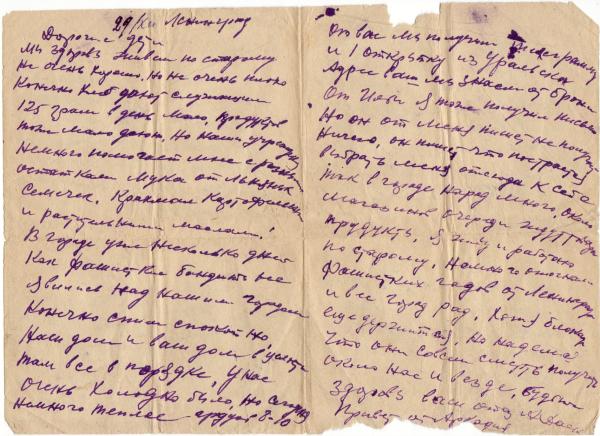 29/XII Ленинград
Дорогие дети
Мы здоровы живем по старому
не очень хорошо, но не очень плохо
конечно хлеб дают служащим
125 грам в день мало, продуктов
тоже мало дают, но наши учрежд
немного помогает мне с разными
остатками мука от льняных
семечек, крахмал картофельный
и растительными маслами!
В городе уже несколько дней
как фашистские бандиты не
явились над нашим городом
конечно спим спокойно
Наш дом и ваш дом в
там все в порядке, у нас
очень холодно было, но сегодня
немного теплее градусов 8-10
От вас мы получили телеграмму
и 1 открытку из Уральска
Адрес ваш мы знаем от Брони
От я тоже получил письмо
Но он от меня пишет не получил
ничего, он пишет что постарается
выбрать меня отсюда к себе
так в городе народ много, около
магазинов очереди ждут
продукты, я живу и работаю
по старому, немного отогнали
фашистких гадов от Ленинграда
и весь город рад, хотя блокада
еще держится, но надежда
что они совсем смуть получат
около нас и везде, будьте
здоровы ваш отец
Привет от Аркадия